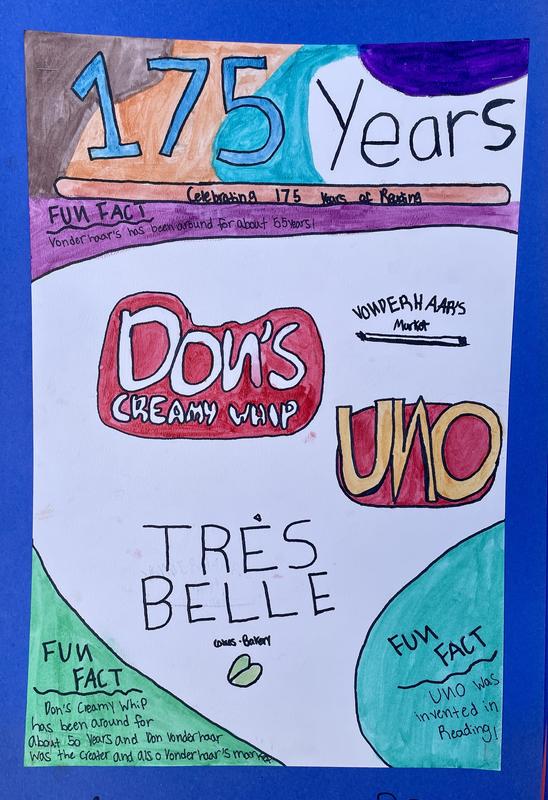 175 Years
Celebrating 175 Years of Reading
FUN FACT
Vonderhaar's has been around for about 55 years!
DON'S
CREAMY WHIP
VONDERHAAR'S
Market
UNO
TRÈS
BELLE
Cakes · Bakery
FUN
FACT
Don's Creamy Whip
has been around for
about 50 Years and Don Vonderhaar
was the creater and also Vonderhaar's market
FUN
FACT
UNO was
invented in
Reading!